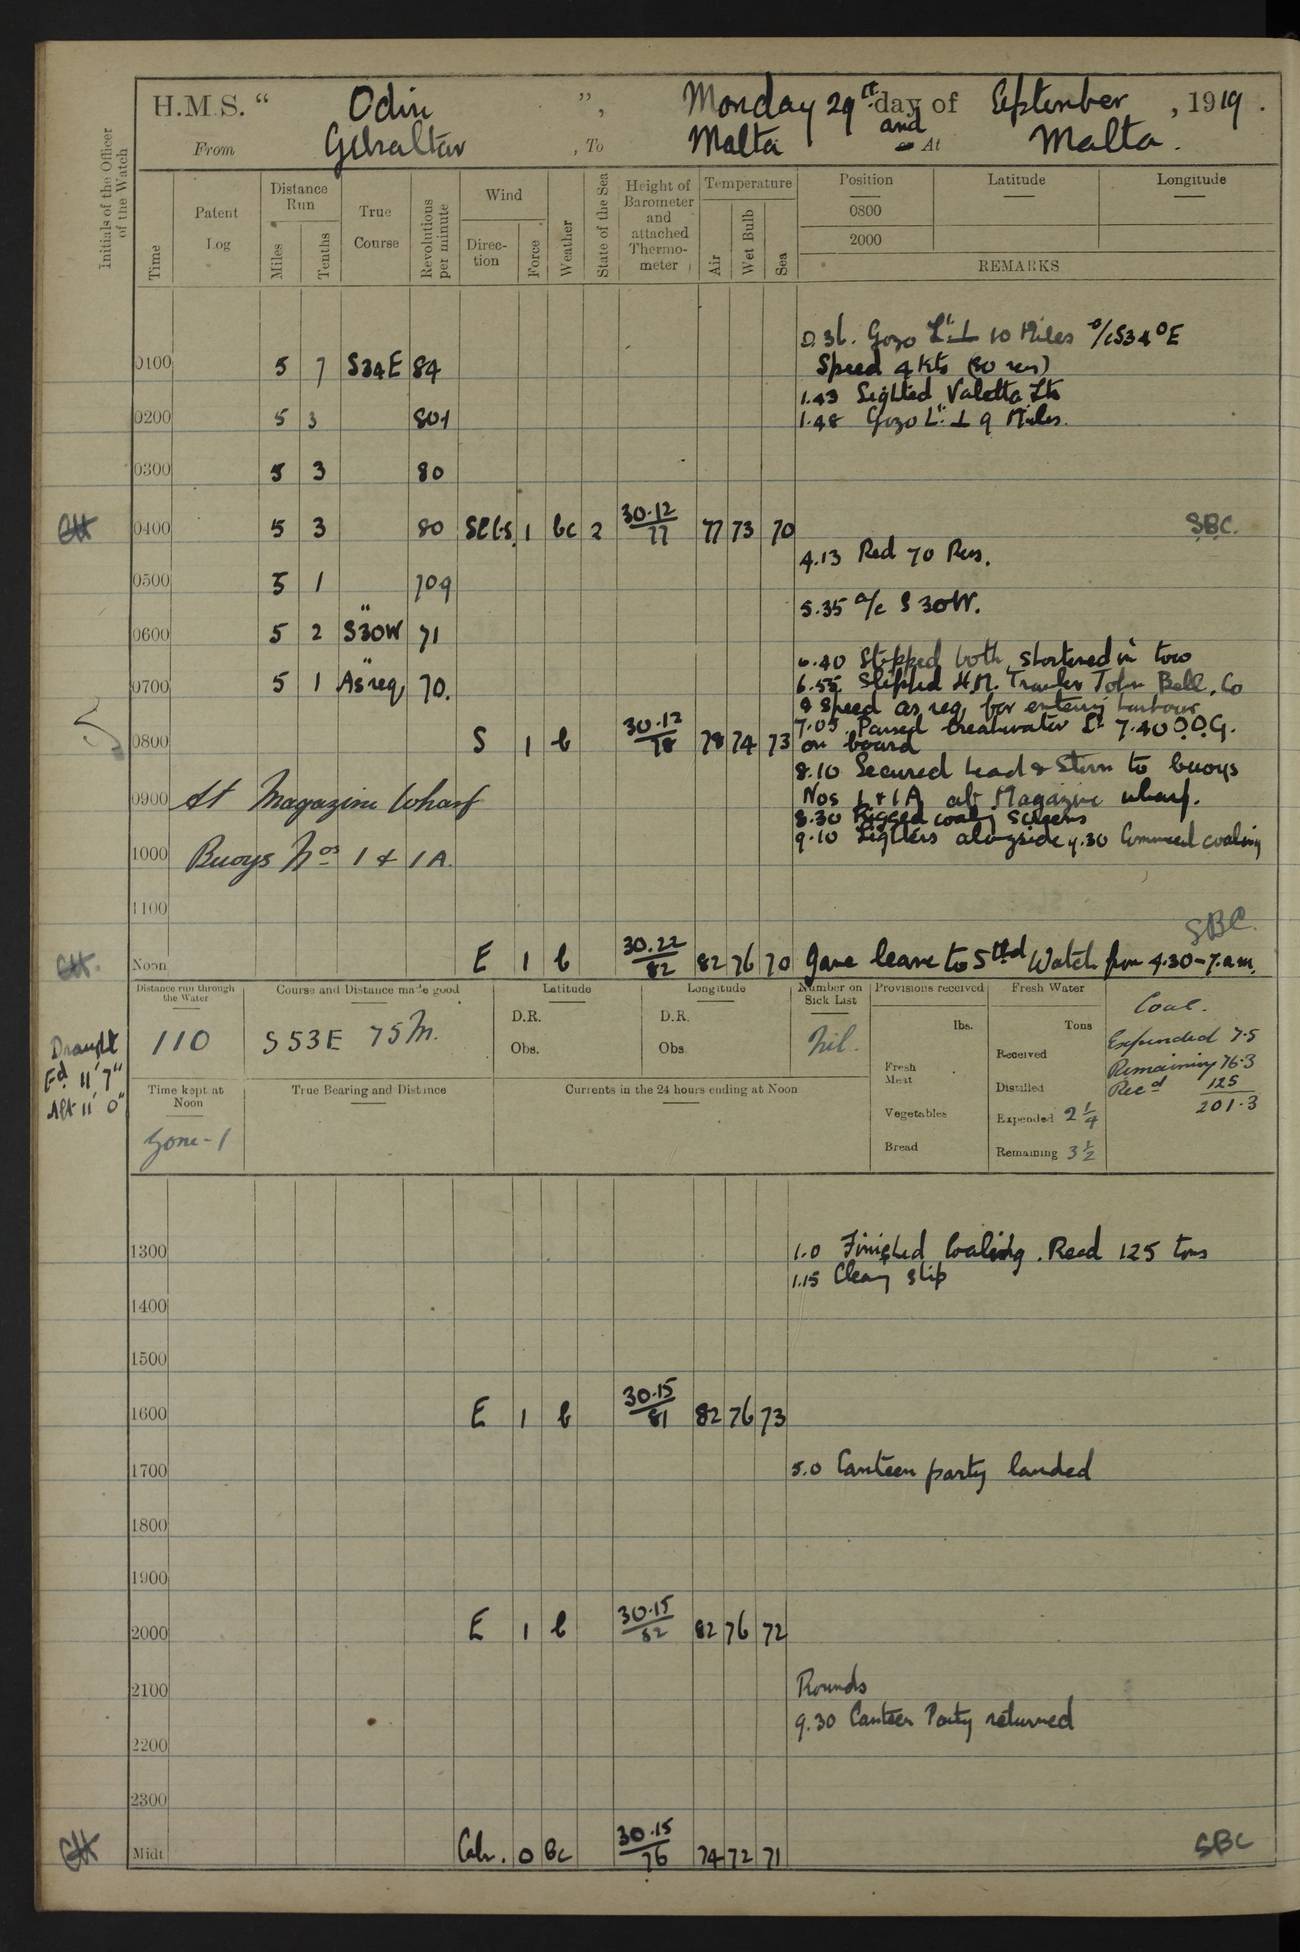 H.M.S. " Odin ", Monday 29th day of September, 1919.
From Gibraltar, To Malta and At Malta.
Initials of the Officer of the Watch
Time
Patent Log
Distance Run
Miles
Tenths
True Course
Revolutions per minute
Wind
Direction
Force
Weather
State of the Sea
Height of Barometer and attached Thermometer
Temperature
Air
Wet Bulb
Sea
Position Latitude Longitude
0800
2000
REMARKS
0.36. Gozo Lt ⊥ 10 Miles a/c S34°E
0100 5 7 S34E 84 Speed 4 Kts (80 revs)
1.43 Sighted Valetta Lts
0200 5 3 801 1.48 Gozo Lt ⊥ 9 Miles.
0300 5 3 80
0400 5 3 80 SE by S. 1 bc 2 30.12/77 77 73 70 SBC.
4.13 Red 70 Revs.
0500 5 1 709
5.35 a/c S 30W.
0600 5 2 S30W 71
6.40 Stopped both, shortened in tow
0700 5 1 As req 70. 6.55 Slipped H.M. Trawler John Bell, Co
& Speed as req for entering harbour
7.05 Passed breakwater Lt 7.40 O.O.G.
0800 S 1 b 30.12/78 78 74 73 on board
8.10 Secured head & Stern to buoys
0900 At Magazine Wharf Nos 1 & 1A alt Magazine wharf.
8.30 Rigged coaling screens
9.10 Lighters alongside 9.30 Commenced coaling
1000 Buoys Nos 1 & 1A.
1100
SBC.
Noon E 1 b 30.22/82 82 76 70 Gave leave to Stbd Watch from 4.30-7.am.
Distance run through the Water
110
Course and Distance made good
S 53E 75 M.
Latitude
D.R.
Obs.
Longitude
D.R.
Obs.
Number on Sick List
Nil.
Provisions received
lbs.
Fresh Meat
Vegetables
Bread
Fresh Water
Tons
Received
Distilled
Expended 2 1/4
Remaining 3 1/2
Coal.
Expended 7.5
Remaining 76.3
Recd 125
201.3
Draught
Fd. 11' 7"
Aft 11' 0"
Time kept at Noon
Zone -1
True Bearing and Distance
Currents in the 24 hours ending at Noon
1300 1.0 Finished Coaling. Recd 125 tons
1.15 Cleang ship
1400
1500
1600 E 1 b 30.15/81 82 76 73
1700 5.0 Canteen party landed
1800
1900
2000 E 1 b 30.15/82 82 76 72
2100 Rounds
9.30 Canteen Party returned
2200
2300
Midt Calm. 0 Bc 30.15/76 74 72 71 SBC